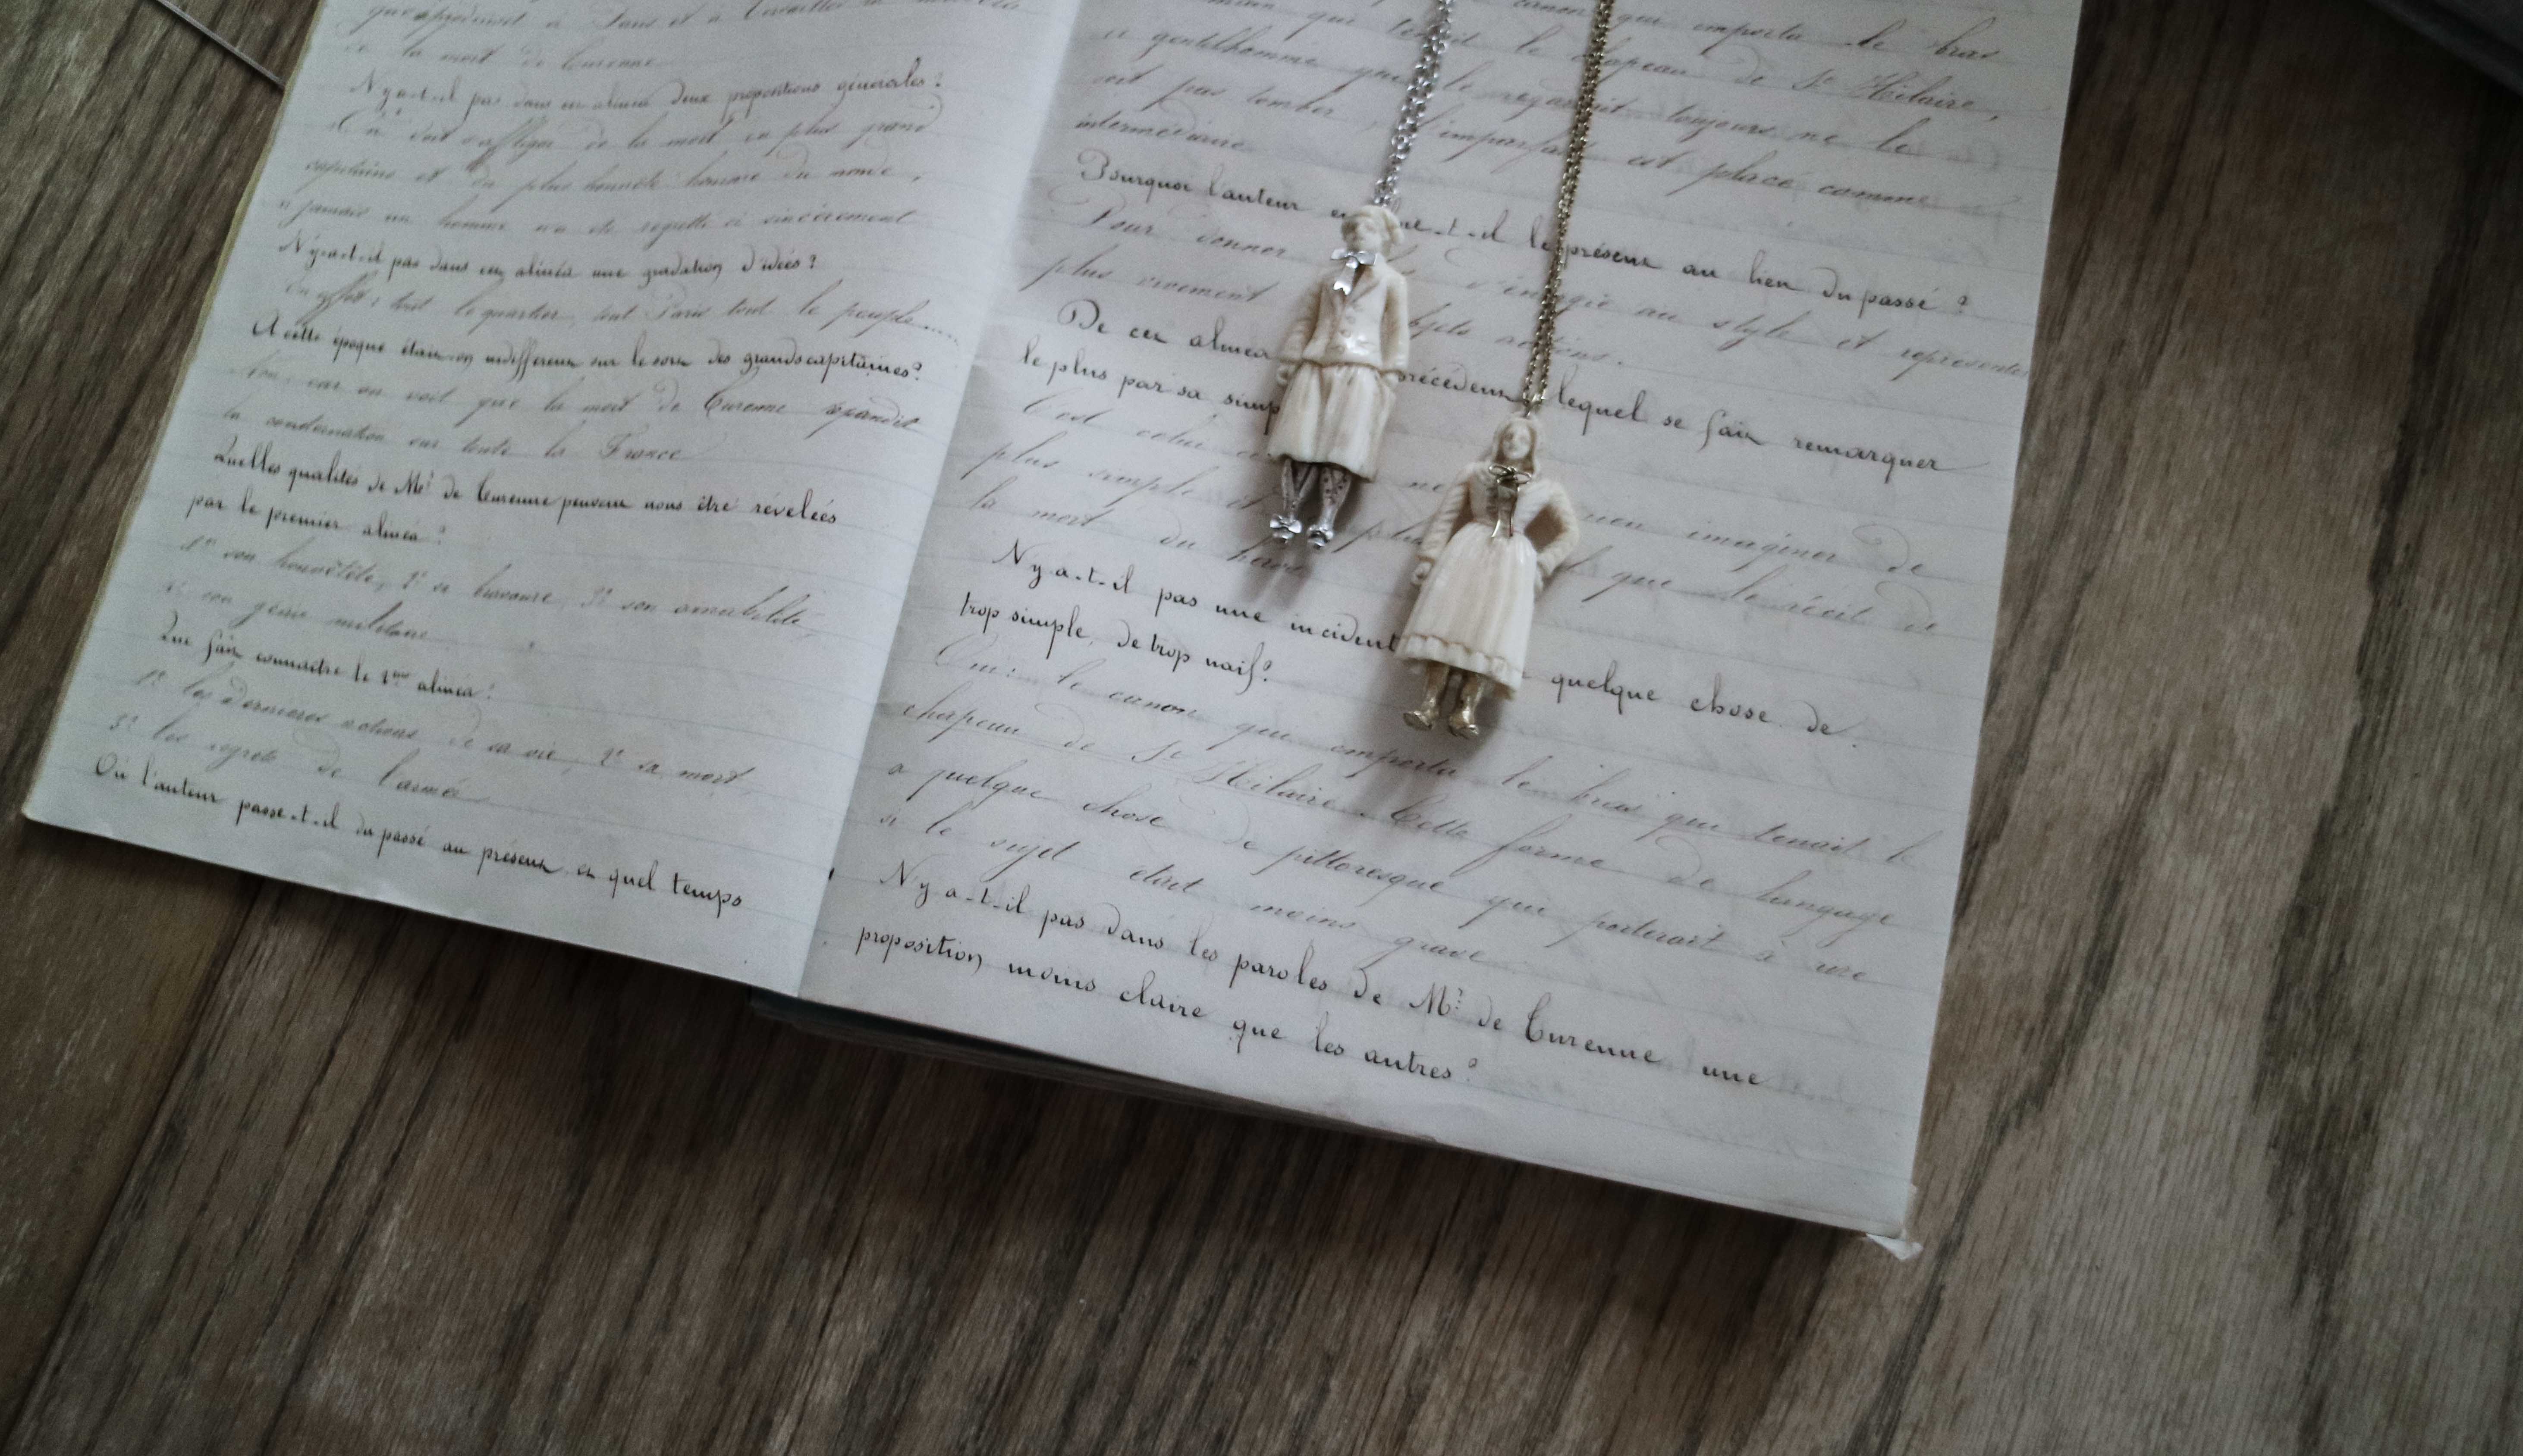 de la mort de Turenne
N'y a-t-il pas dans cet alinéa deux propositions générales?
On doit s'affliger de la mort du plus grand
capitaine et du plus honnête homme du monde,
jamais un homme n'a été regretté si sincèrement
N'y a-t-il pas dans cet alinéa une gradation d'idées?
En effet: tout le quartier, tout Paris tout le peuple....
A cette époque était-on indifférent sur le sort des grands capitaines?
Non, car on voit que la mort de Turenne répandit
la consternation sur toute la France
Quelles qualités de Mr de Turenne peuvent nous être révélées
par le premier alinéa?
1° son honnêteté, 2° sa bravoure, 3° son amabilité,
4° son génie militaire
Que fait connaître le 2me alinéa?
1° les dernières actions de sa vie, 2° sa mort,
3° les regrets de l'armée
Où l'auteur passe-t-il du passé au présent et quel temps
canon qui emporta le bras
qui tenait le chapeau de St Hilaire,
ce gentilhomme qui le regardait toujours ne le
voit pas tomber, l'imparfait est placé comme
intermédiaire
Pourquoi l'auteur t-il le présent au lieu du passé?
Pour donner d'énergie au style et représenter
plus vivement actions.
De cet alinéa précédent lequel se fait remarquer
le plus par sa
C'est celui rien imaginer de
plus simple et que le récit de
la mort du héros
N'y a-t-il pas une incident quelque chose de
trop simple, de trop naïf?
Oui: le canon qui emporta le bras qui tenait le
chapeau de St Hilaire. Cette forme de langage
a quelque chose de pittoresque qui porterait à rire
si le sujet était moins grave
N'y a-t-il pas dans les paroles de Mr de Turenne une
proposition moins claire que les autres?